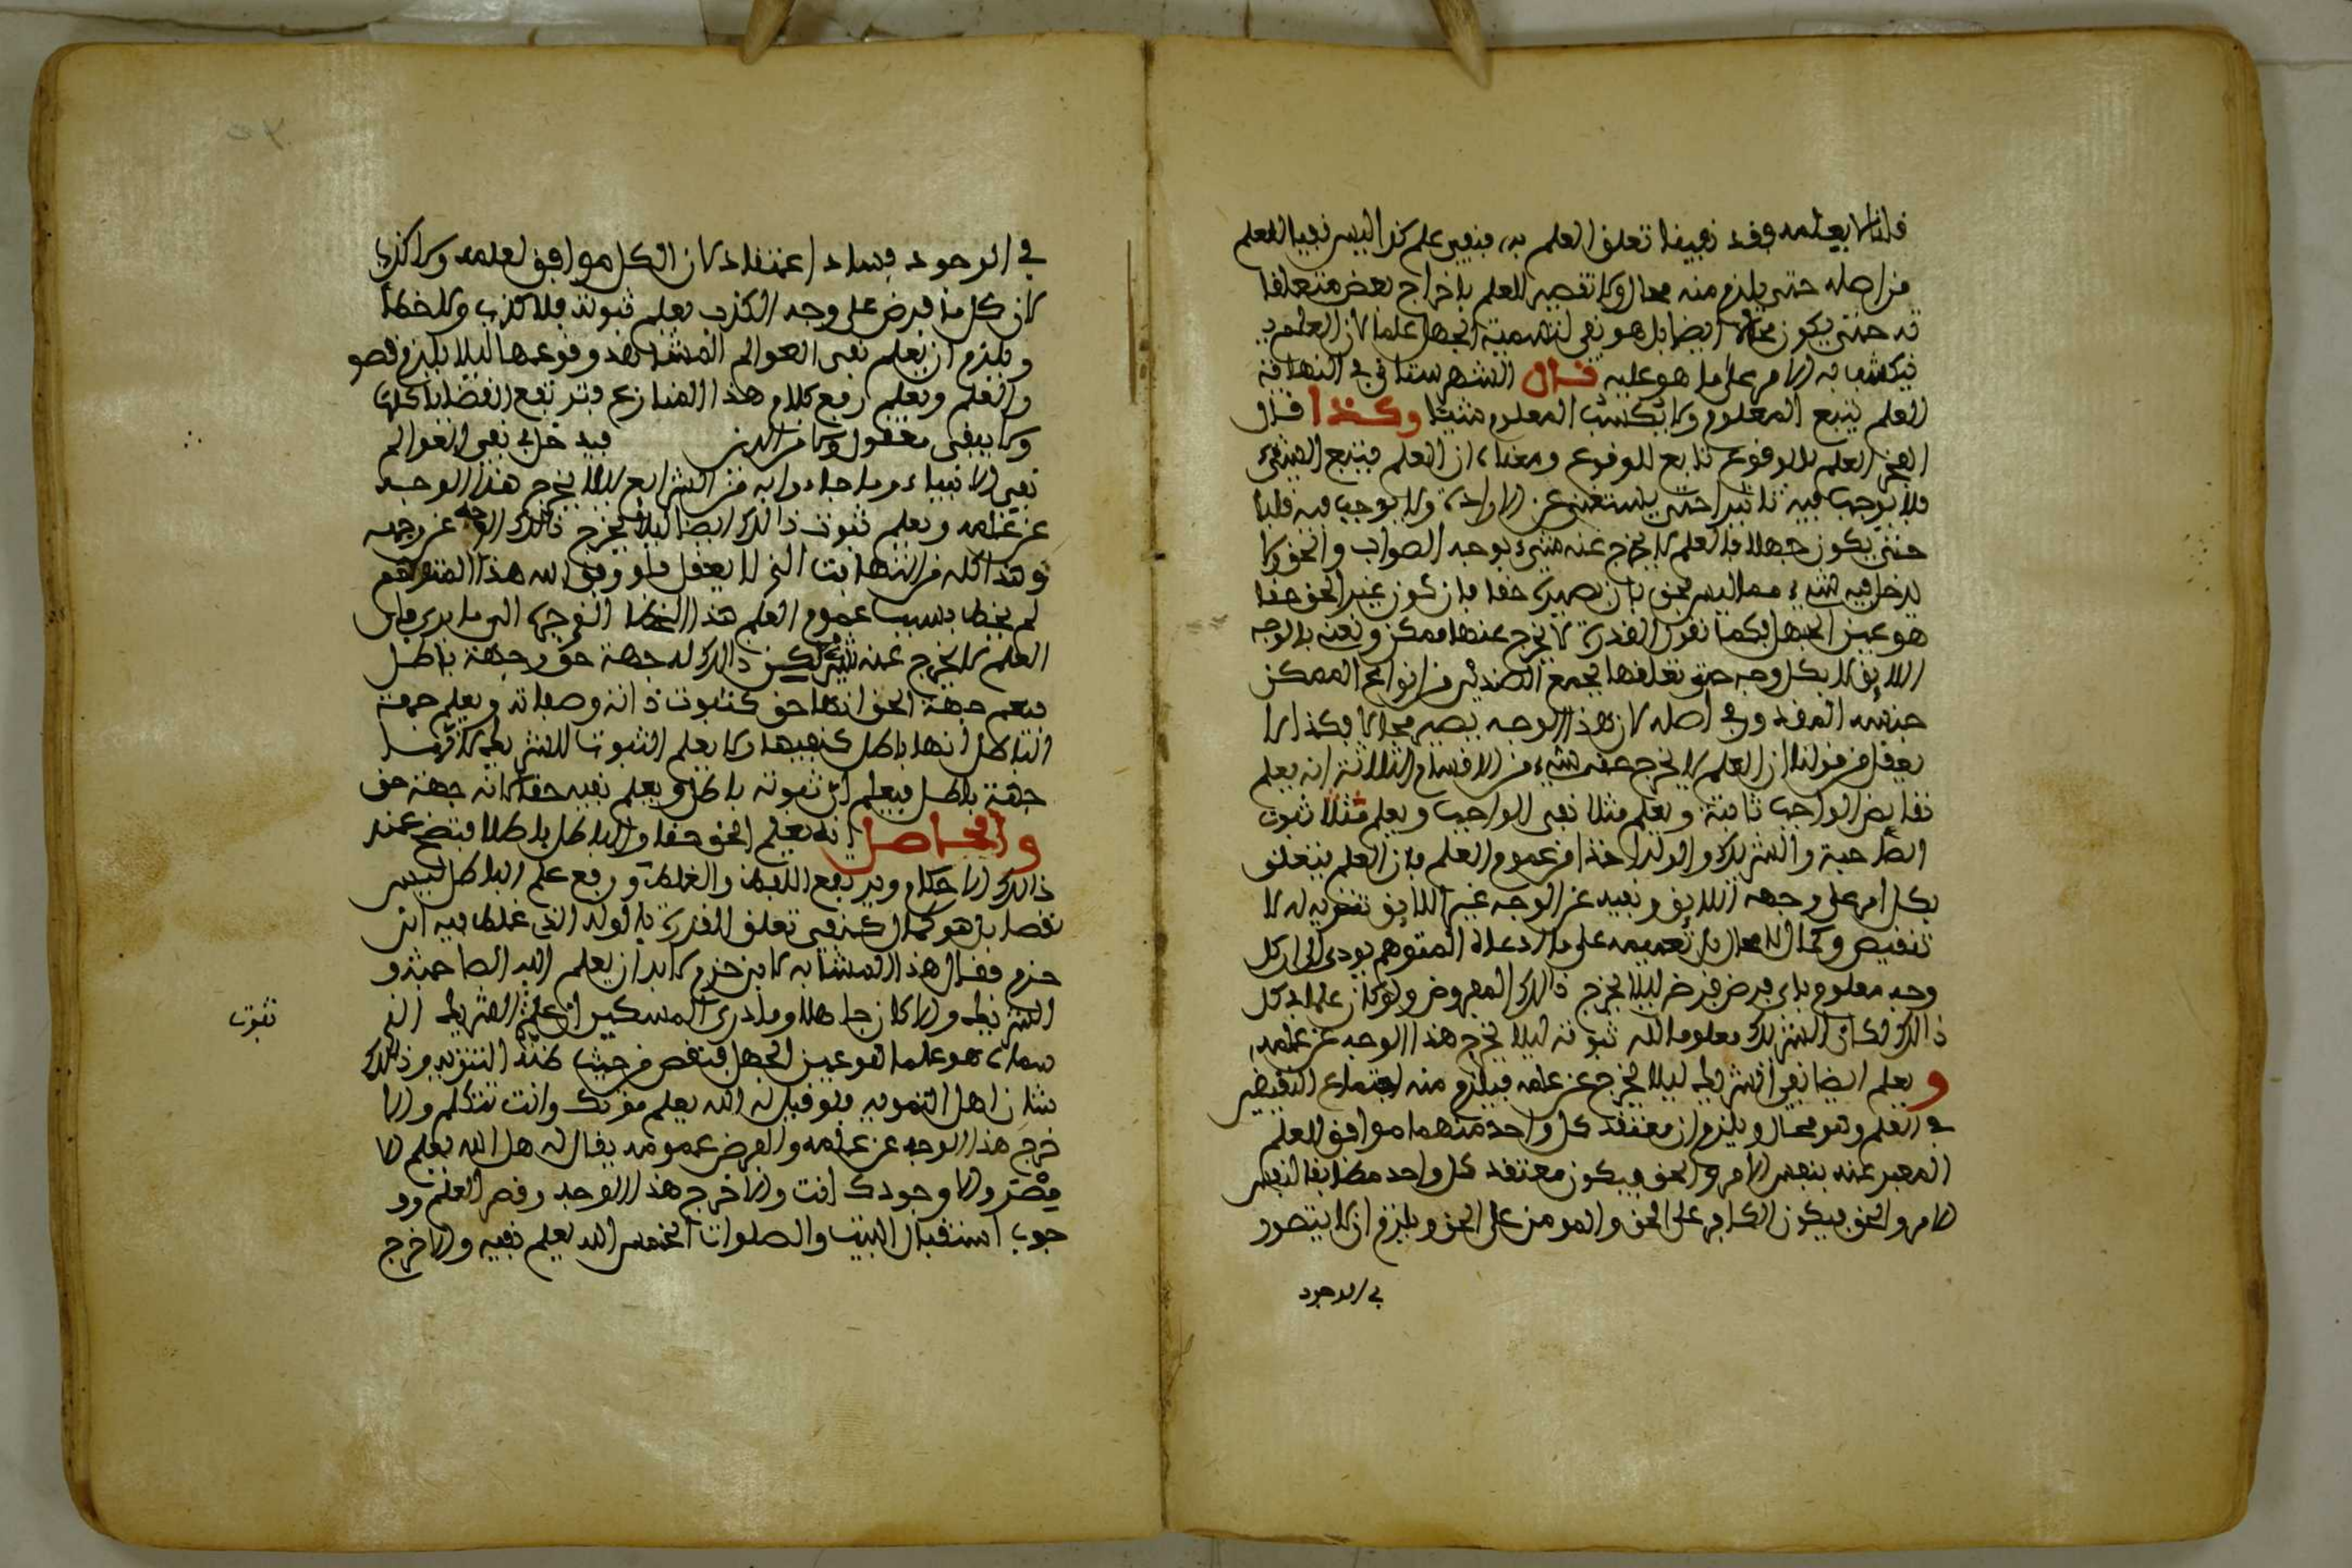 قلنا لا يعلمه فقد نفينا تعلق العلم به، فنفي علم كذا ليس نفيا للعلم
من اصله حتى يلزم منه محال ولا تقصير للعلم باخراج بعض متعلقا
ته حتى يكون محالا ايضا بل هو نفي لتسمية الجهل علما لان العلم به
ينكشف به الامر على ما هو عليه قال الشهرستاني في النهاية
العلم يتبع المعلوم ولا يكسب المعلوم شيئا وكذا قال
الفخر العلم بالوقوع تابع للوقوع ومعناه ان العلم يتبع الشيء
فلا يوجب فيه تاثيرا حتى يستغنى عن الارادة ولا يوجب فيه قلبا
حتى يكون جهلا فالعلم لا يخرج عنه شيء بوجه الصواب والحق ولا
يدخل فيه شيء مما ليس بحق بان يصيره حقا فان كون غير الحق حقا
هو عين الجهل فكما نقول القدرة لا يخرج عنها ممكن ونعنه بالوجه
اللايق لا بكل وجه حتى تعلقها بجمع الضدين من انواع الممكن
جنسه المقدور في اصله لان هذا الوجه يصير محالا فكذا لا
يعقل من قولنا ان العلم لا يخرج عنه شيء من الاقسام الثلاثة انه يعلم
نقايض الواجب ثابتة ويعلم مثلا نفي الواجب ويعلم مثلا ثبوت
الصاحبة والشريك والولد اخذا من عموم العلم فان العلم يتعلق
بكل امر على وجهه اللايق ونفيه عن الوجه غير اللايق تنزيه له لا
تنقيص وكمال لا محال بل تعميمه على ما ادعاه المتوهم يودي الى ان كل
وجه معلوم باي فرض فرض ليلا يخرج ذالك المفروض ولو كان علما بكل
ذالك لكان الشريك معلوما لله ثبوته ليلا يخرج هذا الوجه عن علمه،
ويعلم ايضا نفي الشريك ليلا يخرج عن علمه فيلزم منه اجتماع النقيضين
في العلم وهو محال ويلزم ان معتقد كل واحد منهما موافق للعلم
المعبر عنه بنفس الامر والحق فيكون معتقد كل واحد مطابقا لنفس
الامر والحق فيكون الكافر على الحق والمومن على الحق ويلزم ان لا يتصور
في الوجود
في الوجود فساد اعتقاد لان الكل موافق لعلمه ولا كذب
لان كل ما فرض على وجه الكذب يعلم ثبوته فلا كذب ولا خطا
ويلزم ان يعلم نفي العوالم المشاهد وقوعها ليلا يلزم قصو
والعلم ويعلم رفع كلام هذا المنازع فترتفع القضايا كلها
ولا يبقى معقول ولا من الدين فيدخل في نفي العوالم
نفي الانبياء وما جاءوا به من الشرايع ليلا يخرج هذا الوجه
عن علمه ويعلم ثبوت ذالك ايضا ليلا يخرج ذالك الوجه عن وجهه
وهذا كله من التهافت الذي لا يعقل فلو وفق الله هذا المتوهم
لم يخطا بسبب عموم العلم هذا الخطا
العلم لا يخرج عنه شيء لكن ذالك له جهة حق وجهة باطل
فيعلم جهة الحق انها حق كثبوت ذاته وصفاته ويعلم جهة
الباطل انها باطل كنفيها ولا يعلم الثبوت للشريك لانها
جهة باطل فيعلم ان ثبوته باطل ويعلم نفيه حقا لانه جهة حق
والحاصل انه يعلم الحق حقا والباطل باطلا فتضح عند
ذالك الاحكام ويرتفع اللغط والغلط ورفع علم الباطل ليس
نقصا بل هو كمال كنفي تعلق القدرة بالولد الذي غلط فيه ابن
حزم فقال هذا المشابه لابن حزم لابد ان يعلم الله الصاحبة و
الشريك والا كان جاهلا وما درى المسكين ان علم الشريك الذ
سماه هو علما هو عين الجهل فنقص من حيث ظنه التنزيه وذالك
شان اهل التمويه فلو قيل له الله يعلم موتك وانت تتكلم والا
خرج هذا الوجه عن علمه والغرض عمومه يقال له هل الله يعلم لا
مصر ولا وجودك انت والا خرج هذا الوجه وقصر العلم وو
جوب استقبال البيت والصلوات الخمس الله يعلم نفيه والا خرج
ثبوت